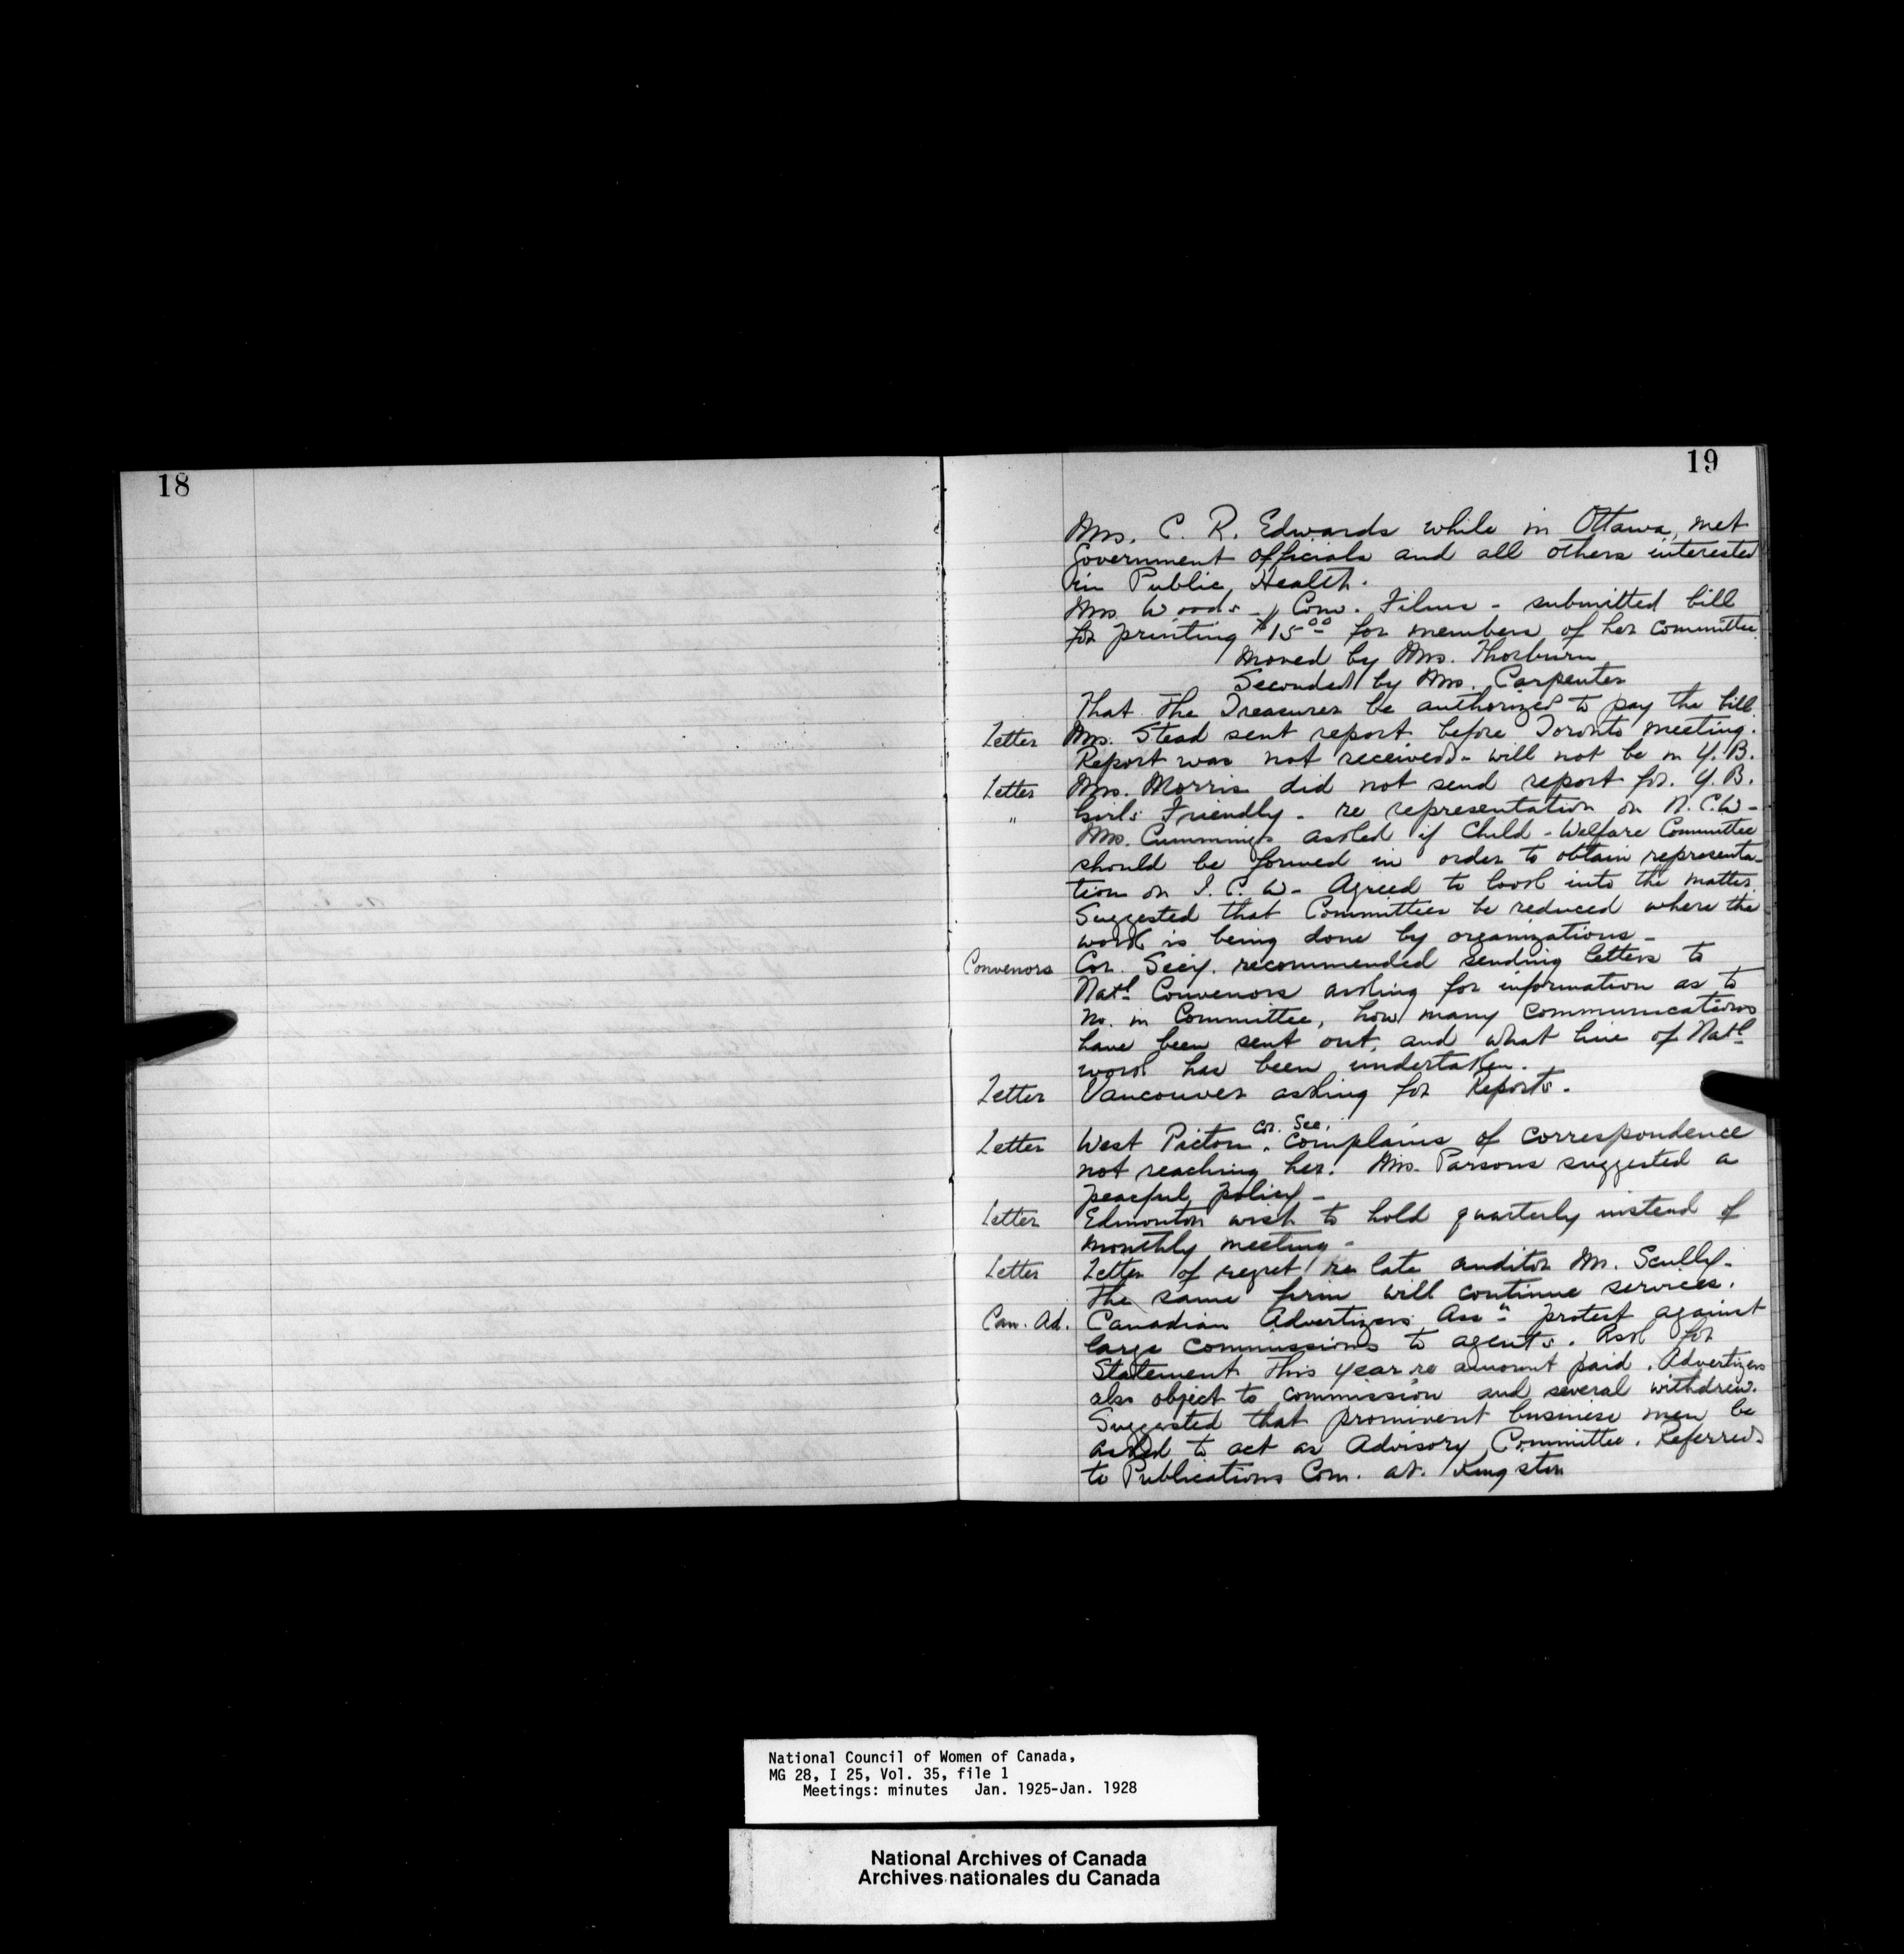 18
19
Mrs. C. R. Edwards while in Ottawa, met
Government officials and all others interested
in Public Health.
Mrs Woods - Conv. Films - submitted bill
for printing $15.00 for members of her Committee.
Moved by Mrs. Thorburn
Seconded by Mrs. Carpenter
That The Treasurer be authorized to pay the bill
Letter Mrs. Stead sent report before Toronto meeting.
Report was not received - will not be in Y.B.
Letter Mrs. Morris did not send report for Y.B.
" Girls Friendly - re representation on N.C.W -
Mrs. Cummings asked if Child-Welfare Committee
should be formed in order to obtain representa-
tion on I.C.W - Agreed to look into the matter.
Suggested that Committees be reduced where the
work is being done by organizations -
Convenors Cor. Secy. recommended sending letters to
Natl Convenors asking for information as to
No. in Committee, how many communications
have been sent out, and what line of Natl
work has been undertaken.
Letter Vancouver asking for Reports.
Letter West Pictou Cor. Sec. complains of correspondence
not reaching her. Mrs. Parsons suggested a
peaceful policy -
Letter Edmonton wish to hold quarterly instead of
monthly meeting -
Letter Letter of regret re late auditor Mr. Scully.
The same firm will continue services.
Can. Ad. Canadian Advertizers Assn protest against
large commissions to agents. Ask for
Statement this year re amount paid. Advertizers
also object to commission and several withdrew.
Suggested that prominent business men be
asked to act as Advisory Committee. Referred
to Publications Com. at Kingston
National Council of Women of Canada,
MG 28, I 25, Vol. 35, file 1
Meetings: minutes Jan. 1925-Jan. 1928
National Archives of Canada
Archives nationales du Canada